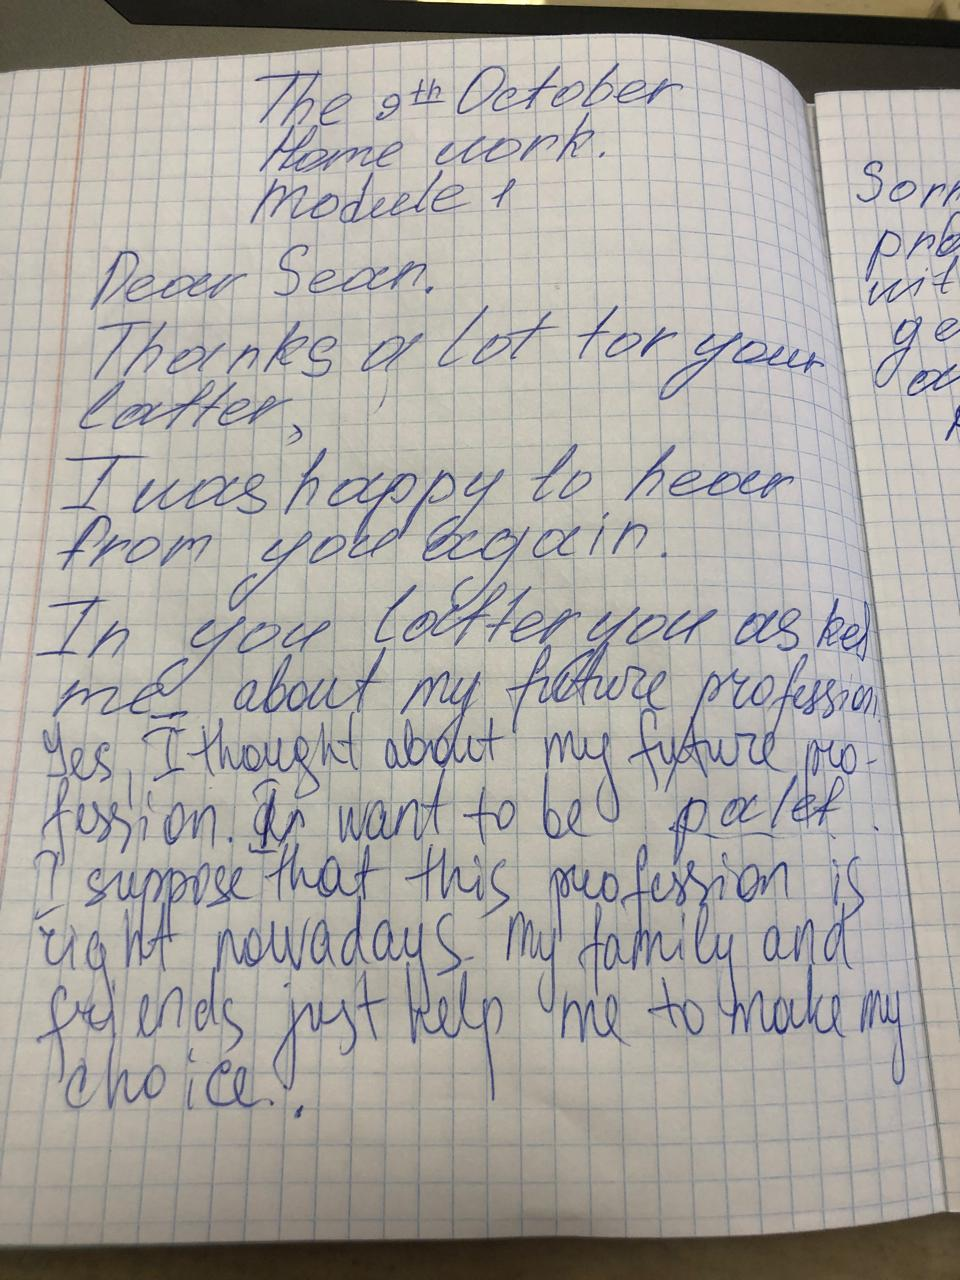 The 9th October
Home work.
Module 1
Dear Sean.
Thanks a lot for your
latter,
I was happy to hear
from you again.
In you latter you asked
me about my future profession.
Yes, I thought about my future pro-
fession. I want to be palet.
I suppose that this profession is
right nowadays. My family and
friends just help me to make my
choice.
Sorr
prb
wit
ge